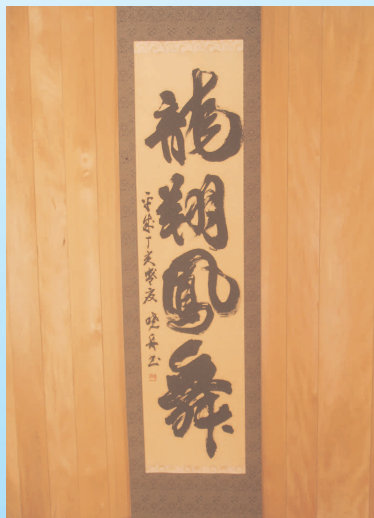 龍翔鳳舞
平成丁亥